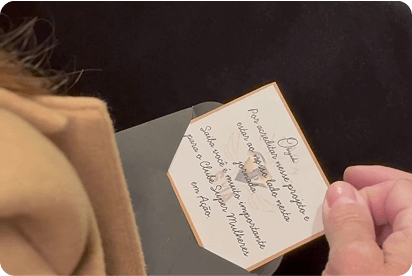 Obrigada
Por acreditar nesse projeto e
estar ao nosso lado nesta
jornada.
Saiba você é muito importante
para o Clube Super Mulheres
em Ação.